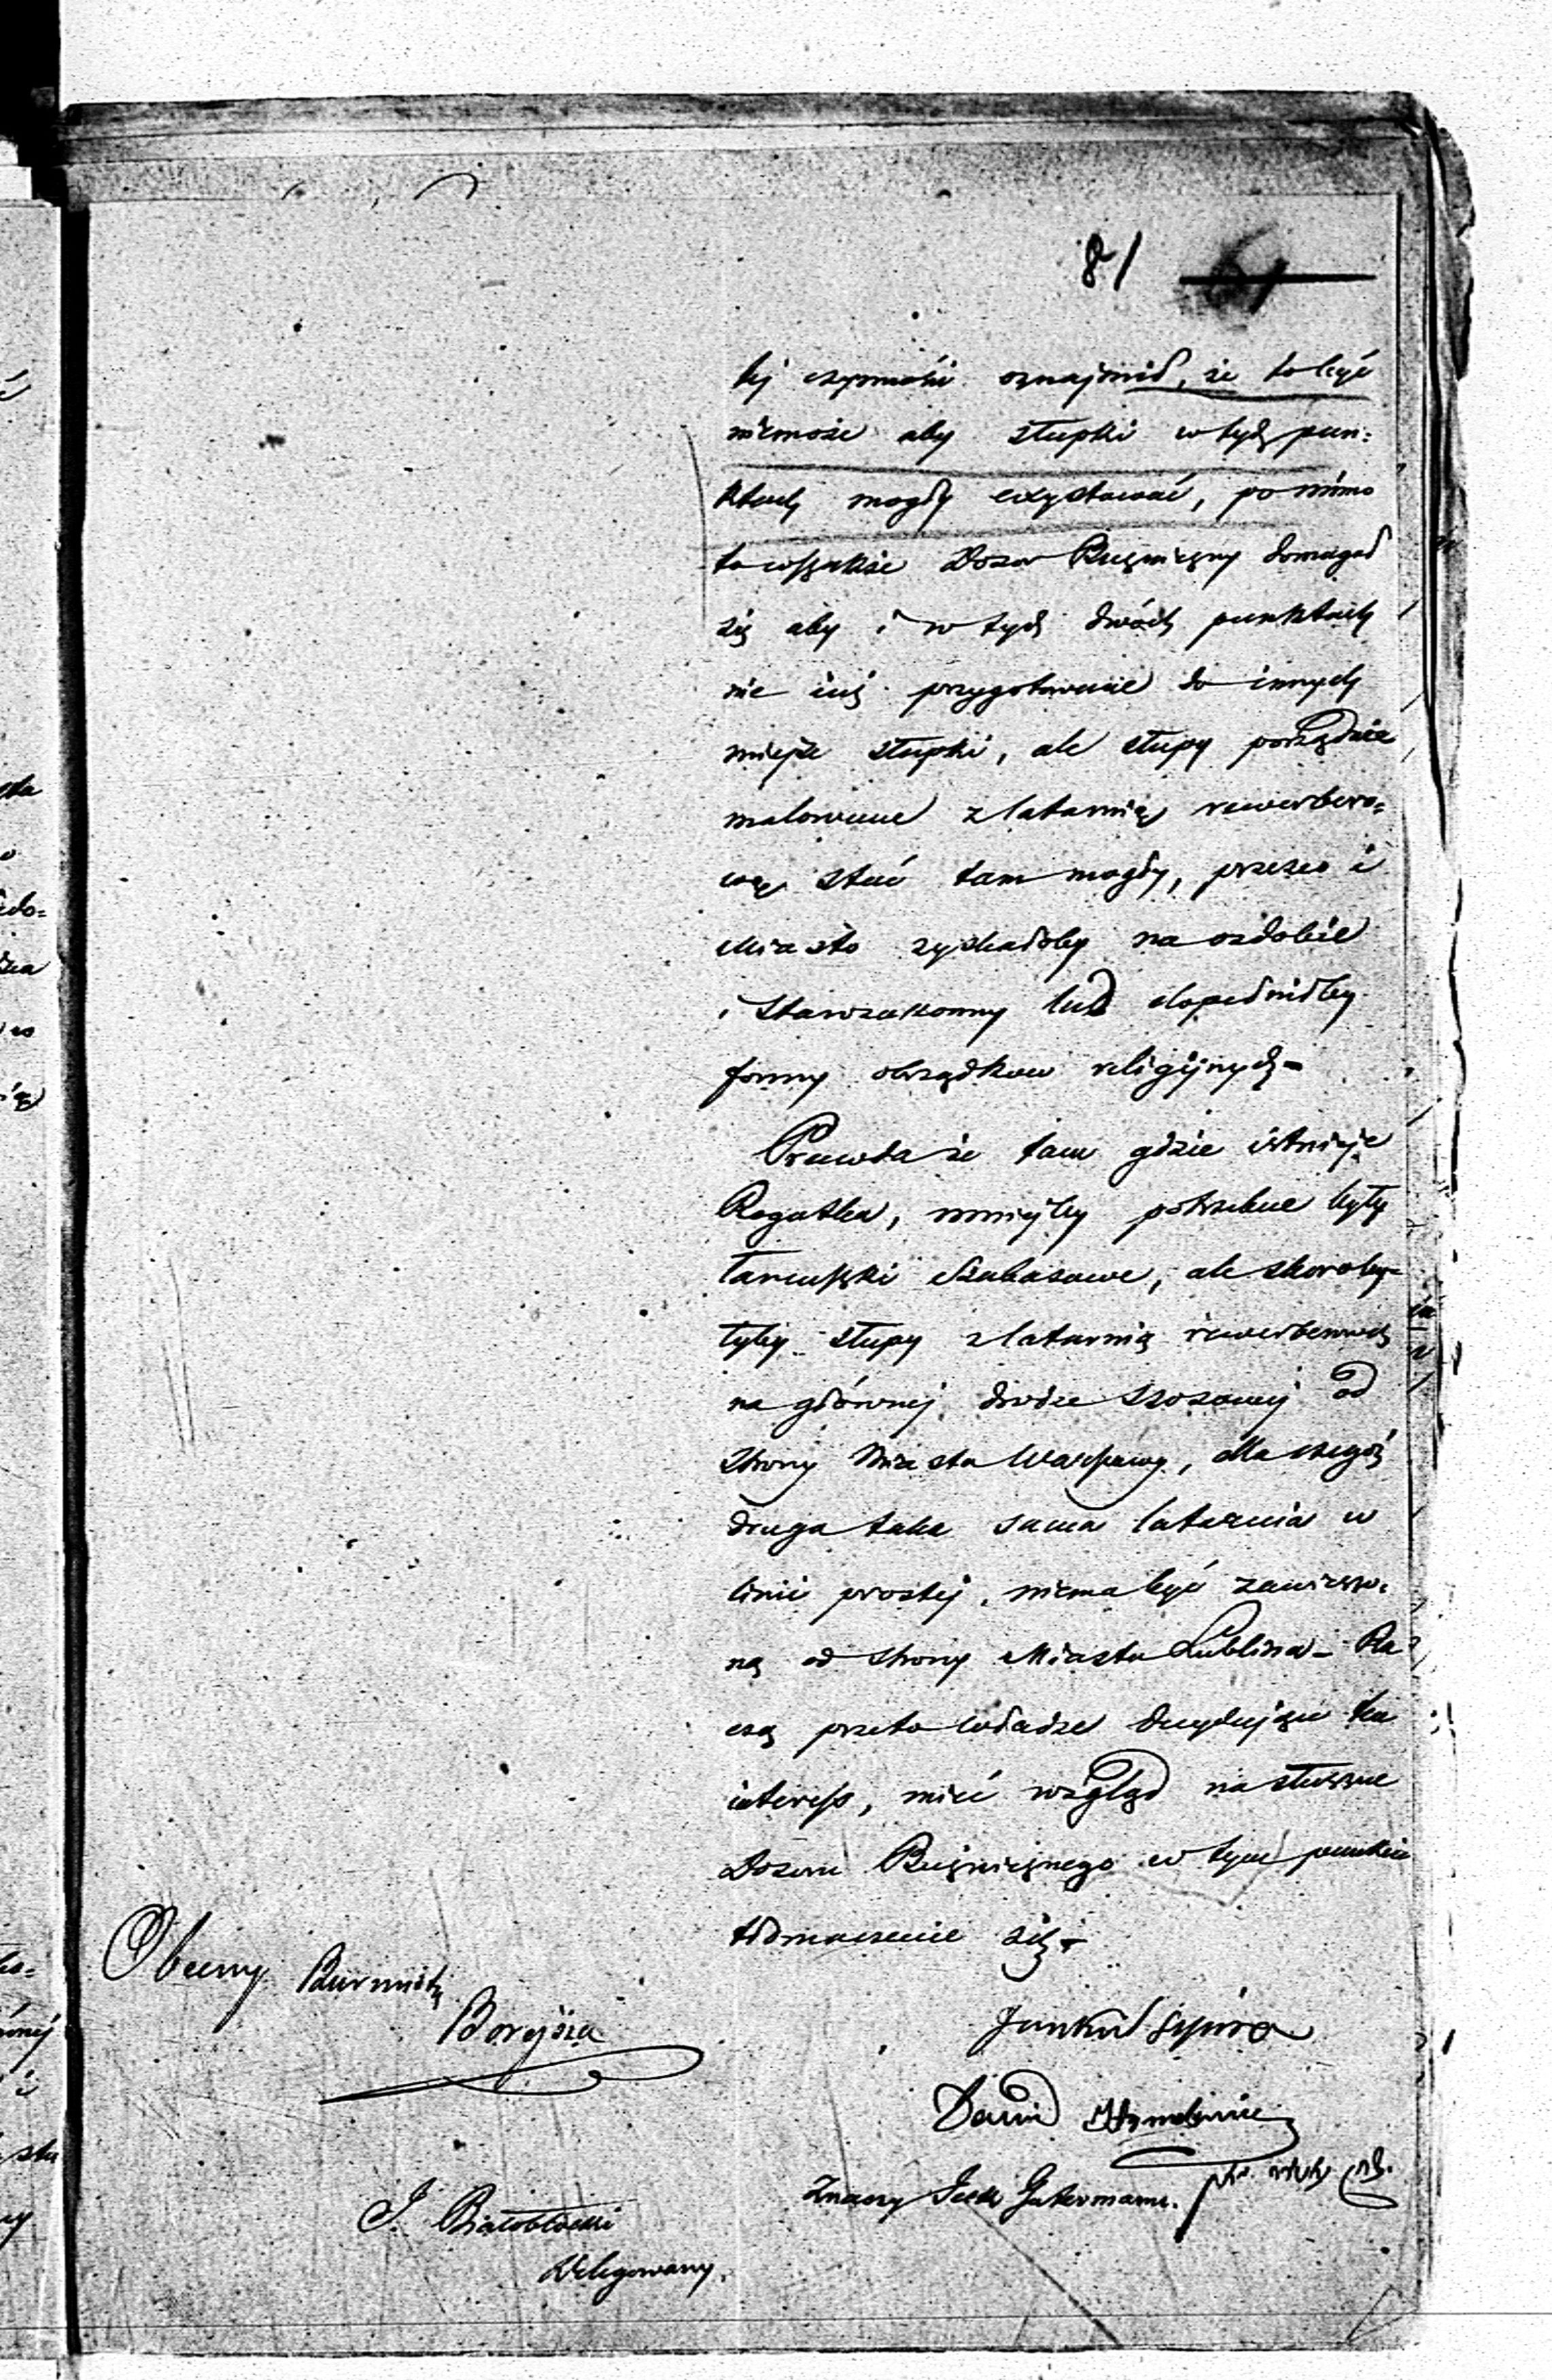 81
tej czynności oznajmił, że to być
niemoże aby słupki w tych pun=
ktach mogły exystować, pomimo
to wszakże Dozór Bużniczny domagał
się aby i w tych dwóch punktach
nie iuż przygotowane do innych
miejsc słupki, ale słupy porządnie
malowane z latarnią rewerbero=
wą stać tam mogły, przezco i
Miasto zyskałoby na ozdobie
i Starozakonny lud dopełniłby
formy obrządkow religijnych –
Prawda że tam gdzie istnieje
Rogatka, mniejby potrzebne były
łańcuszki Szabasowe, ale skoroby=
łyby słupy z latarnią rewerberową
na głównej drodze szosowej od
strony Miasta Warszawy, dla czegoż
druga taka sama latarnia w
linii prostej, niema być zawieszo=
ną od strony Miasta Lublina –
czą przeto władze decydujące ten
interess, mieć wzgląd na słuszne
Dozoru Bużnicznego w tym punkcie
tłomaczenie się –
Obecny Burmistrz
Borejsza
Jankiel Szpiro
Dawid
Znaczy Icek Guterman
J. Białobłocki
Delegowany.